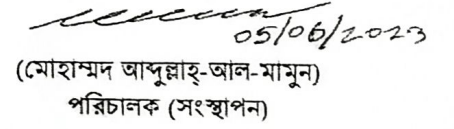 05/06/2023
(মোহাম্মদ আব্দুল্লাহ্-আল-মামুন)
পরিচালক (সংস্থাপন)